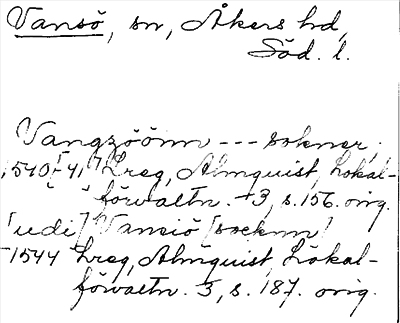 Vansö, sn, Åkers hd,
Söd. l.
Vangzöönn --- sokner,
1540-41 Lreg, Almquist, Lokal-
förvaltn. 3, s. 156. orig.
[udi] Vansiö [socknn]
1544 Lreg, Almquist, Lokal-
förvaltn. 3, s. 187. orig.